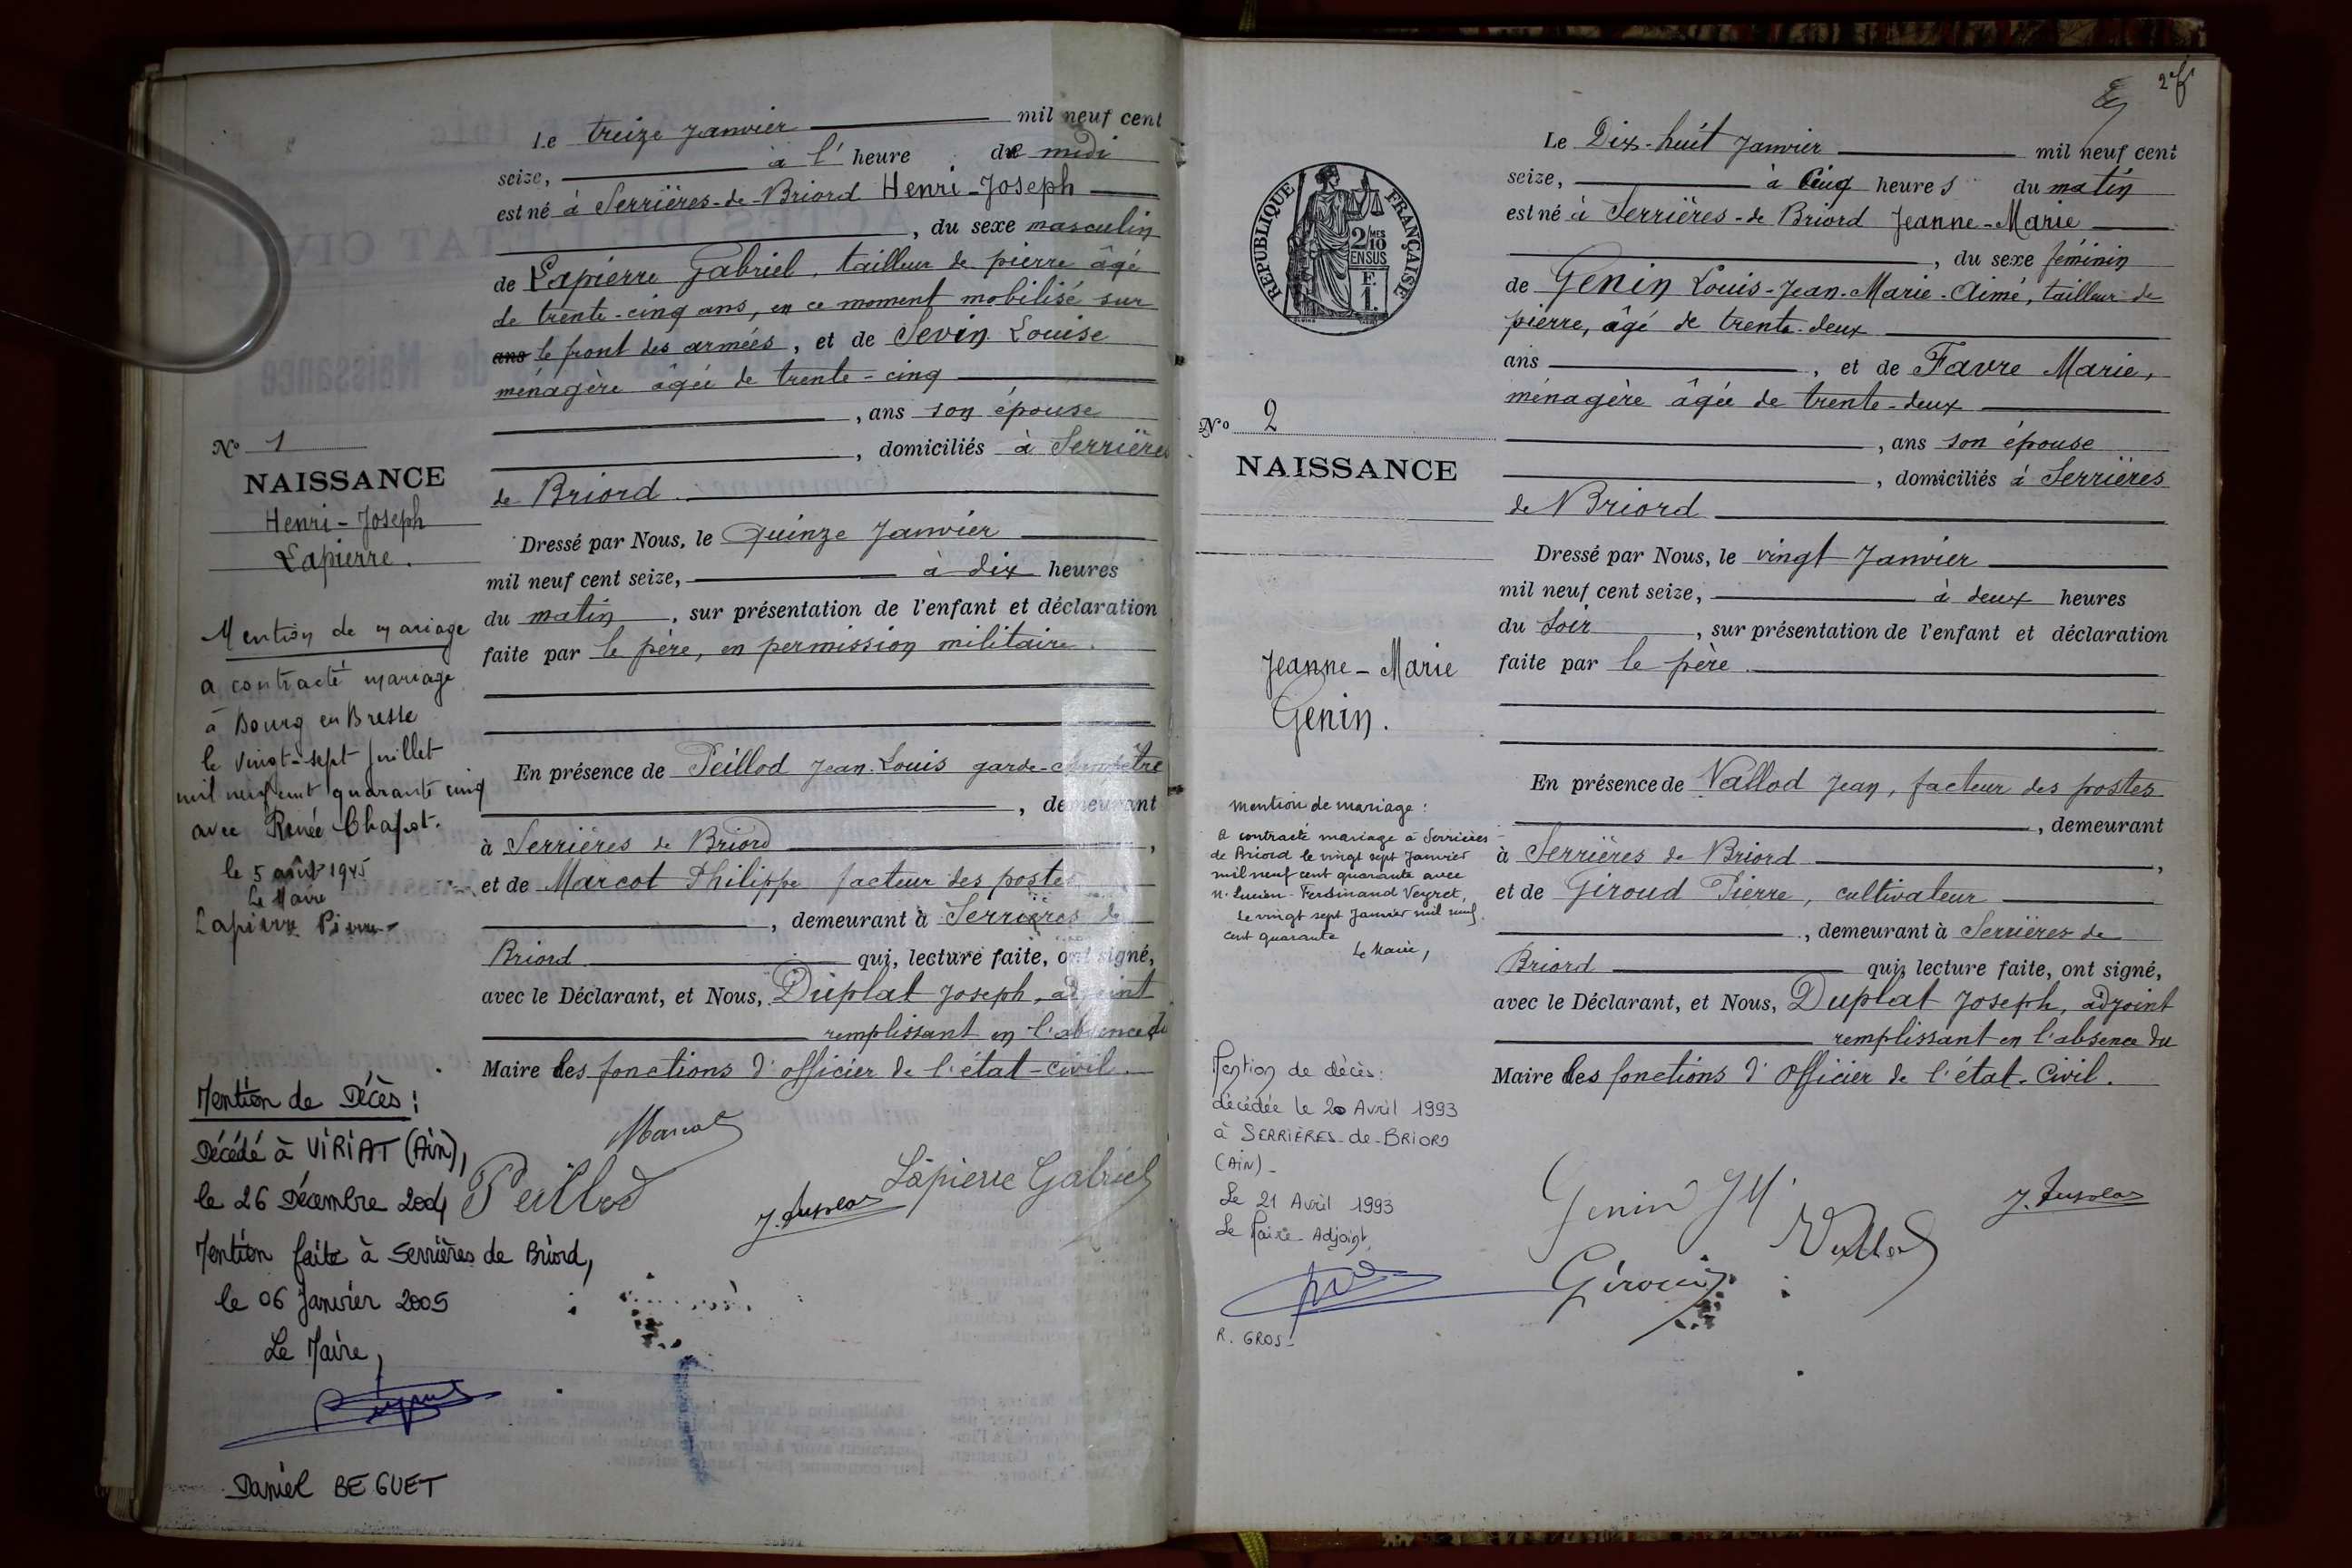 Le treize Janvier mil neuf cent
seize, à l' heure de midi
est né à Serrières-de-Briord Henri-Joseph
, du sexe masculin
de Lapierre Gabriel, tailleur de pierre âgé
de trente-cinq ans, en ce moment mobilisé sur
ans le front des armées, et de Sevin Louise
ménagère âgée de trente-cinq
, ans son épouse
, domiciliés à Serrières
de Briord.
Dressé par Nous, le Quinze Janvier
mil neuf cent seize, à dix heures
du matin, sur présentation de l'enfant et déclaration
faite par le père, en permission militaire.
En présence de Peillod Jean-Louis garde-champêtre
, demeurant
à Serrières de Briord,
et de Marcot Philippe facteur des postes
, demeurant à Serrières de
Briord qui, lecture faite, ont signé,
avec le Déclarant, et Nous, Duplat Joseph, adjoint
remplissant en l'absence du
Maire les fonctions d'officier de l'état-civil.
Marcot
Peillod
J. Duplat
Lapierre Gabriel
N° 1
NAISSANCE
Henri-Joseph
Lapierre.
Mention de mariage
a contracté mariage
à Bourg en Bresse
le vingt-sept juillet
mil neuf cent quarante cinq
avec Renée Chapot.
le 5 août 1945
Le Maire
Lapierre Pierre
Mention de Décès :
Décédé à VIRIAT (Ain),
le 26 Décembre 2004
Mention faite à Serrières de Briord,
le 06 Janvier 2005
Le Maire,
Daniel BEGUET
2
Le Dix-huit Janvier mil neuf cent
seize, à Cinq heures du matin
est né à Serrières-de Briord Jeanne-Marie
, du sexe féminin
de Genin Louis-Jean-Marie-Aimé, tailleur de
pierre, âgé de trente-deux
ans, et de Favre Marie,
ménagère âgée de trente-deux
, ans son épouse
, domiciliés à Serrières
de Briord
Dressé par Nous, le vingt Janvier
mil neuf cent seize, à deux heures
du soir, sur présentation de l'enfant et déclaration
faite par le père.
En présence de Vallod Jean, facteur des postes
, demeurant
à Serrières de Briord,
et de Giroud Pierre, cultivateur
, demeurant à Serrières de
Briord qui, lecture faite, ont signé,
avec le Déclarant, et Nous, Duplat Joseph, adjoint
remplissant en l'absence du
Maire les fonctions d'Officier de l'état-Civil.
Genin JM
Giroud
Vallod
J. Duplat
RÉPUBLIQUE FRANÇAISE
2/10 MES
EN SUS
F.
1.
N° 2
NAISSANCE
Jeanne-Marie
Genin.
mention de mariage :
a contracté mariage à Serrières
de Briord le vingt sept Janvier
mil neuf cent quarante avec
M. Lucien-Ferdinand Veyret,
Le vingt sept Janvier mil neuf
cent quarante
Le Maire,
Mention de décès:
décédée le 20 Avril 1993
à SERRIÈRES-de-BRIORD
(AIN)-
Le 21 Avril 1993
Le Maire-Adjoint,
R. GROS-